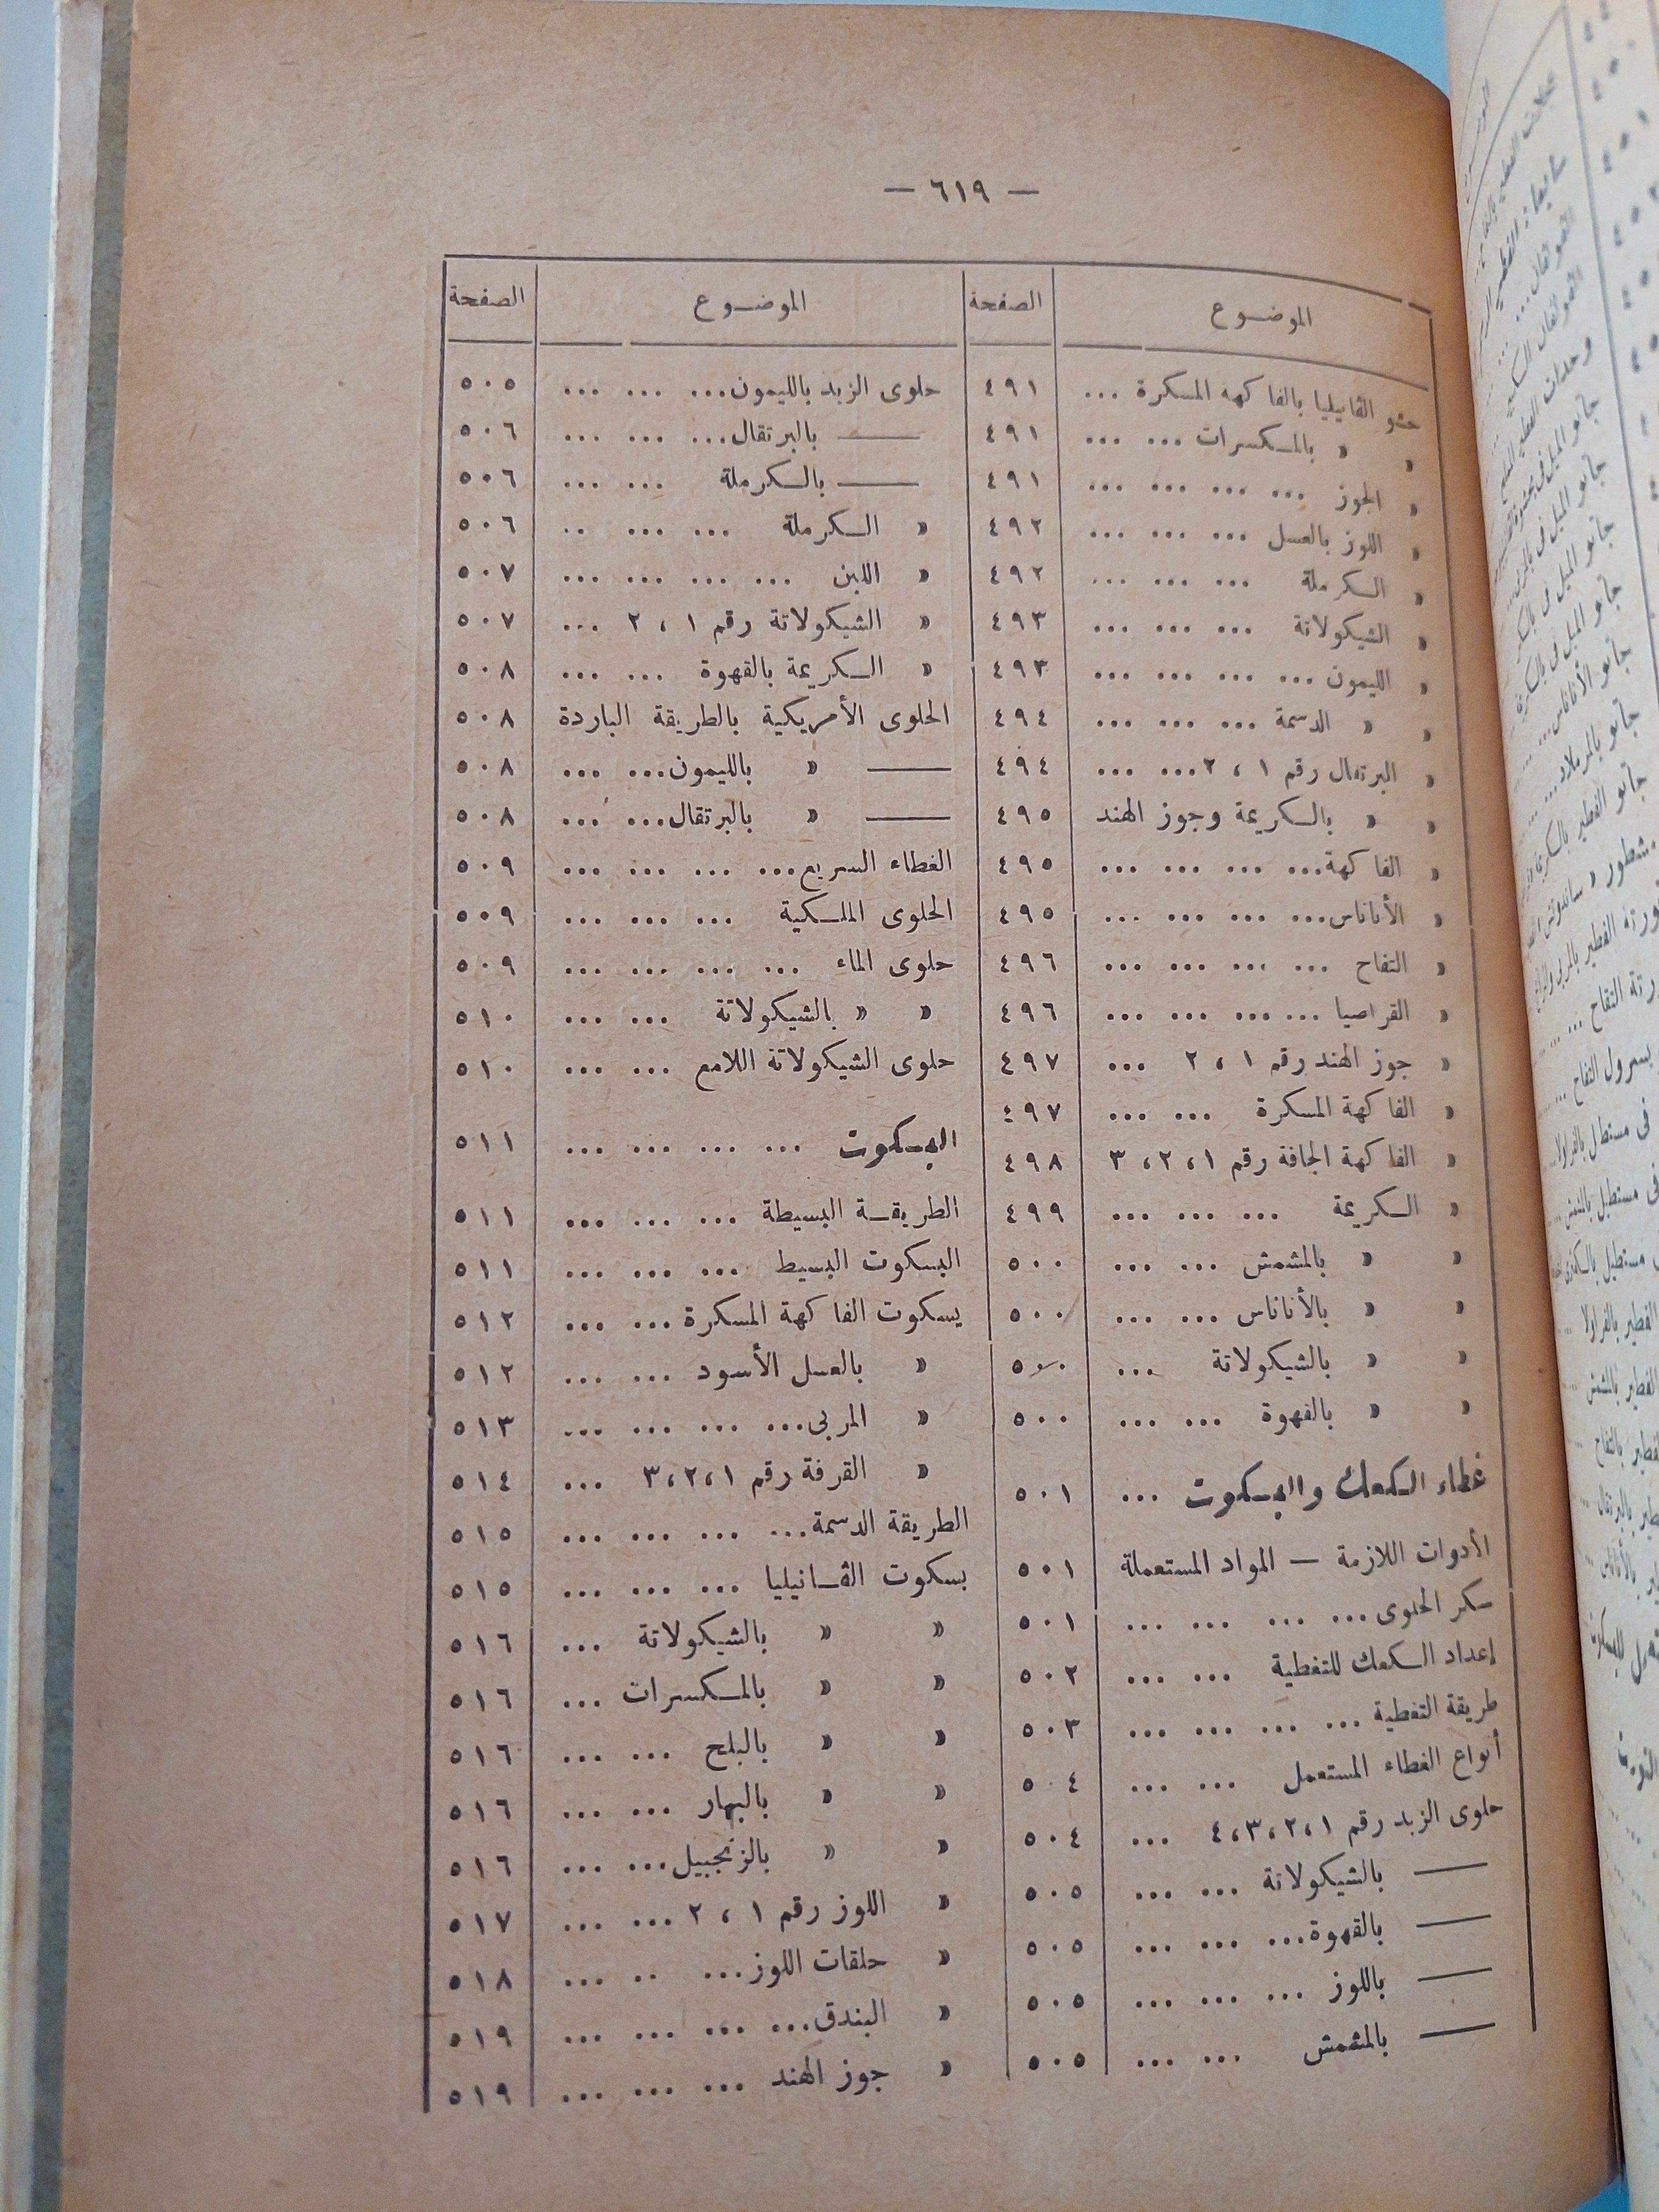 — ٦١٩ —
الموضوع الصفحة
حشو الڤانيليا بالفاكهة المسكرة ... ٤٩١
» » بالمكسرات ... ... ٤٩١
» الجوز ... ... ... ... ٤٩١
» اللوز بالعسل ... ... ... ٤٩٢
» السكرملة ... ... ... ٤٩٢
» الشيكولاتة ... ... ... ٤٩٣
» الليمون ... ... ... ... ٤٩٣
» » الدسمة ... ... ... ٤٩٤
» البرتقال رقم ١ ، ٢ ... ... ٤٩٤
» » بالكريمة وجوز الهند ٤٩٥
» الفاكهة ... ... ... ... ٤٩٥
» الأناناس ... ... ... ... ٤٩٥
» التفاح ... ... ... ... ٤٩٦
» القراصيا ... ... ... ... ٤٩٦
» جوز الهند رقم ١ ، ٢ ... ٤٩٧
» الفاكهة المسكرة ... ... ٤٩٧
» الفاكهة الجافة رقم ١ ، ٢ ، ٣ ٤٩٨
» الكريمة ... ... ... ٤٩٩
» » بالمشمش ... ... ٥٠٠
» » بالأناناس ... ... ٥٠٠
» » بالشيكولاتة ... ٥٠٠
» » بالقهوة ... ... ٥٠٠
غطاء الكعك والبسكوت ... ٥٠١
الأدوات اللازمة — المواد المستعملة ٥٠١
سكر الحلوى ... ... ... ... ٥٠١
إعداد الكعك للتغطية ... ... ٥٠٢
طريقة التغطية ... ... ... ... ٥٠٣
أنواع الغطاء المستعمل ... ... ٥٠٤
حلوى الزبد رقم ١ ، ٢ ، ٣ ، ٤ ... ٥٠٤
—— بالشيكولاتة ... ... ٥٠٥
—— بالقهوة ... ... ... ٥٠٥
—— باللوز ... ... ... ٥٠٥
—— بالمشمش ... ... ٥٠٥
الموضوع الصفحة
حلوى الزبد بالليمون ... ... ... ٥٠٥
—— بالبرتقال ... ... ... ٥٠٦
—— بالكرملة ... ... ٥٠٦
» الكرملة ... ... .. ٥٠٦
» اللبن ... ... ... ... ٥٠٧
» الشيكولاتة رقم ١ ، ٢ ... ٥٠٧
» الكريمة بالقهوة ... ... ٥٠٨
الحلوى الأمريكية بالطريقة الباردة ٥٠٨
—— » بالليمون ... ... ٥٠٨
—— » بالبرتقال ... ... ٥٠٨
الغطاء السريع ... ... ... ... ٥٠٩
الحلوى الملكية ... ... ... ٥٠٩
حلوى الماء ... ... ... ... ٥٠٩
» » بالشيكولاتة ... ... ٥١٠
حلوى الشيكولاتة اللامع ... ... ٥١٠
البسكوت ... ... ... ... ٥١١
الطريقة البسيطة ... ... ... ٥١١
البسكوت البسيط ... ... ... ٥١١
بسكوت الفاكهة المسكرة ... ... ٥١٢
» بالعسل الأسود ... ... ٥١٢
» المربى ... ... ... ... ٥١٣
» القرفة رقم ١ ، ٢ ، ٣ ... ٥١٤
الطريقة الدسمة ... ... ... ... ٥١٥
بسكوت الڤانيليا ... ... ... ٥١٥
» » بالشيكولاتة ... ٥١٦
» » بالمكسرات ... ٥١٦
» » بالبلح ... ... ٥١٦
» » بالبهار ... ... ٥١٦
» » بالزنجبيل ... ... ٥١٦
» اللوز رقم ١ ، ٢ ... ... ٥١٧
» حلقات اللوز ... .. ... ٥١٨
» البندق ... ... ... ... ٥١٩
» جوز الهند ... ... ... ٥١٩